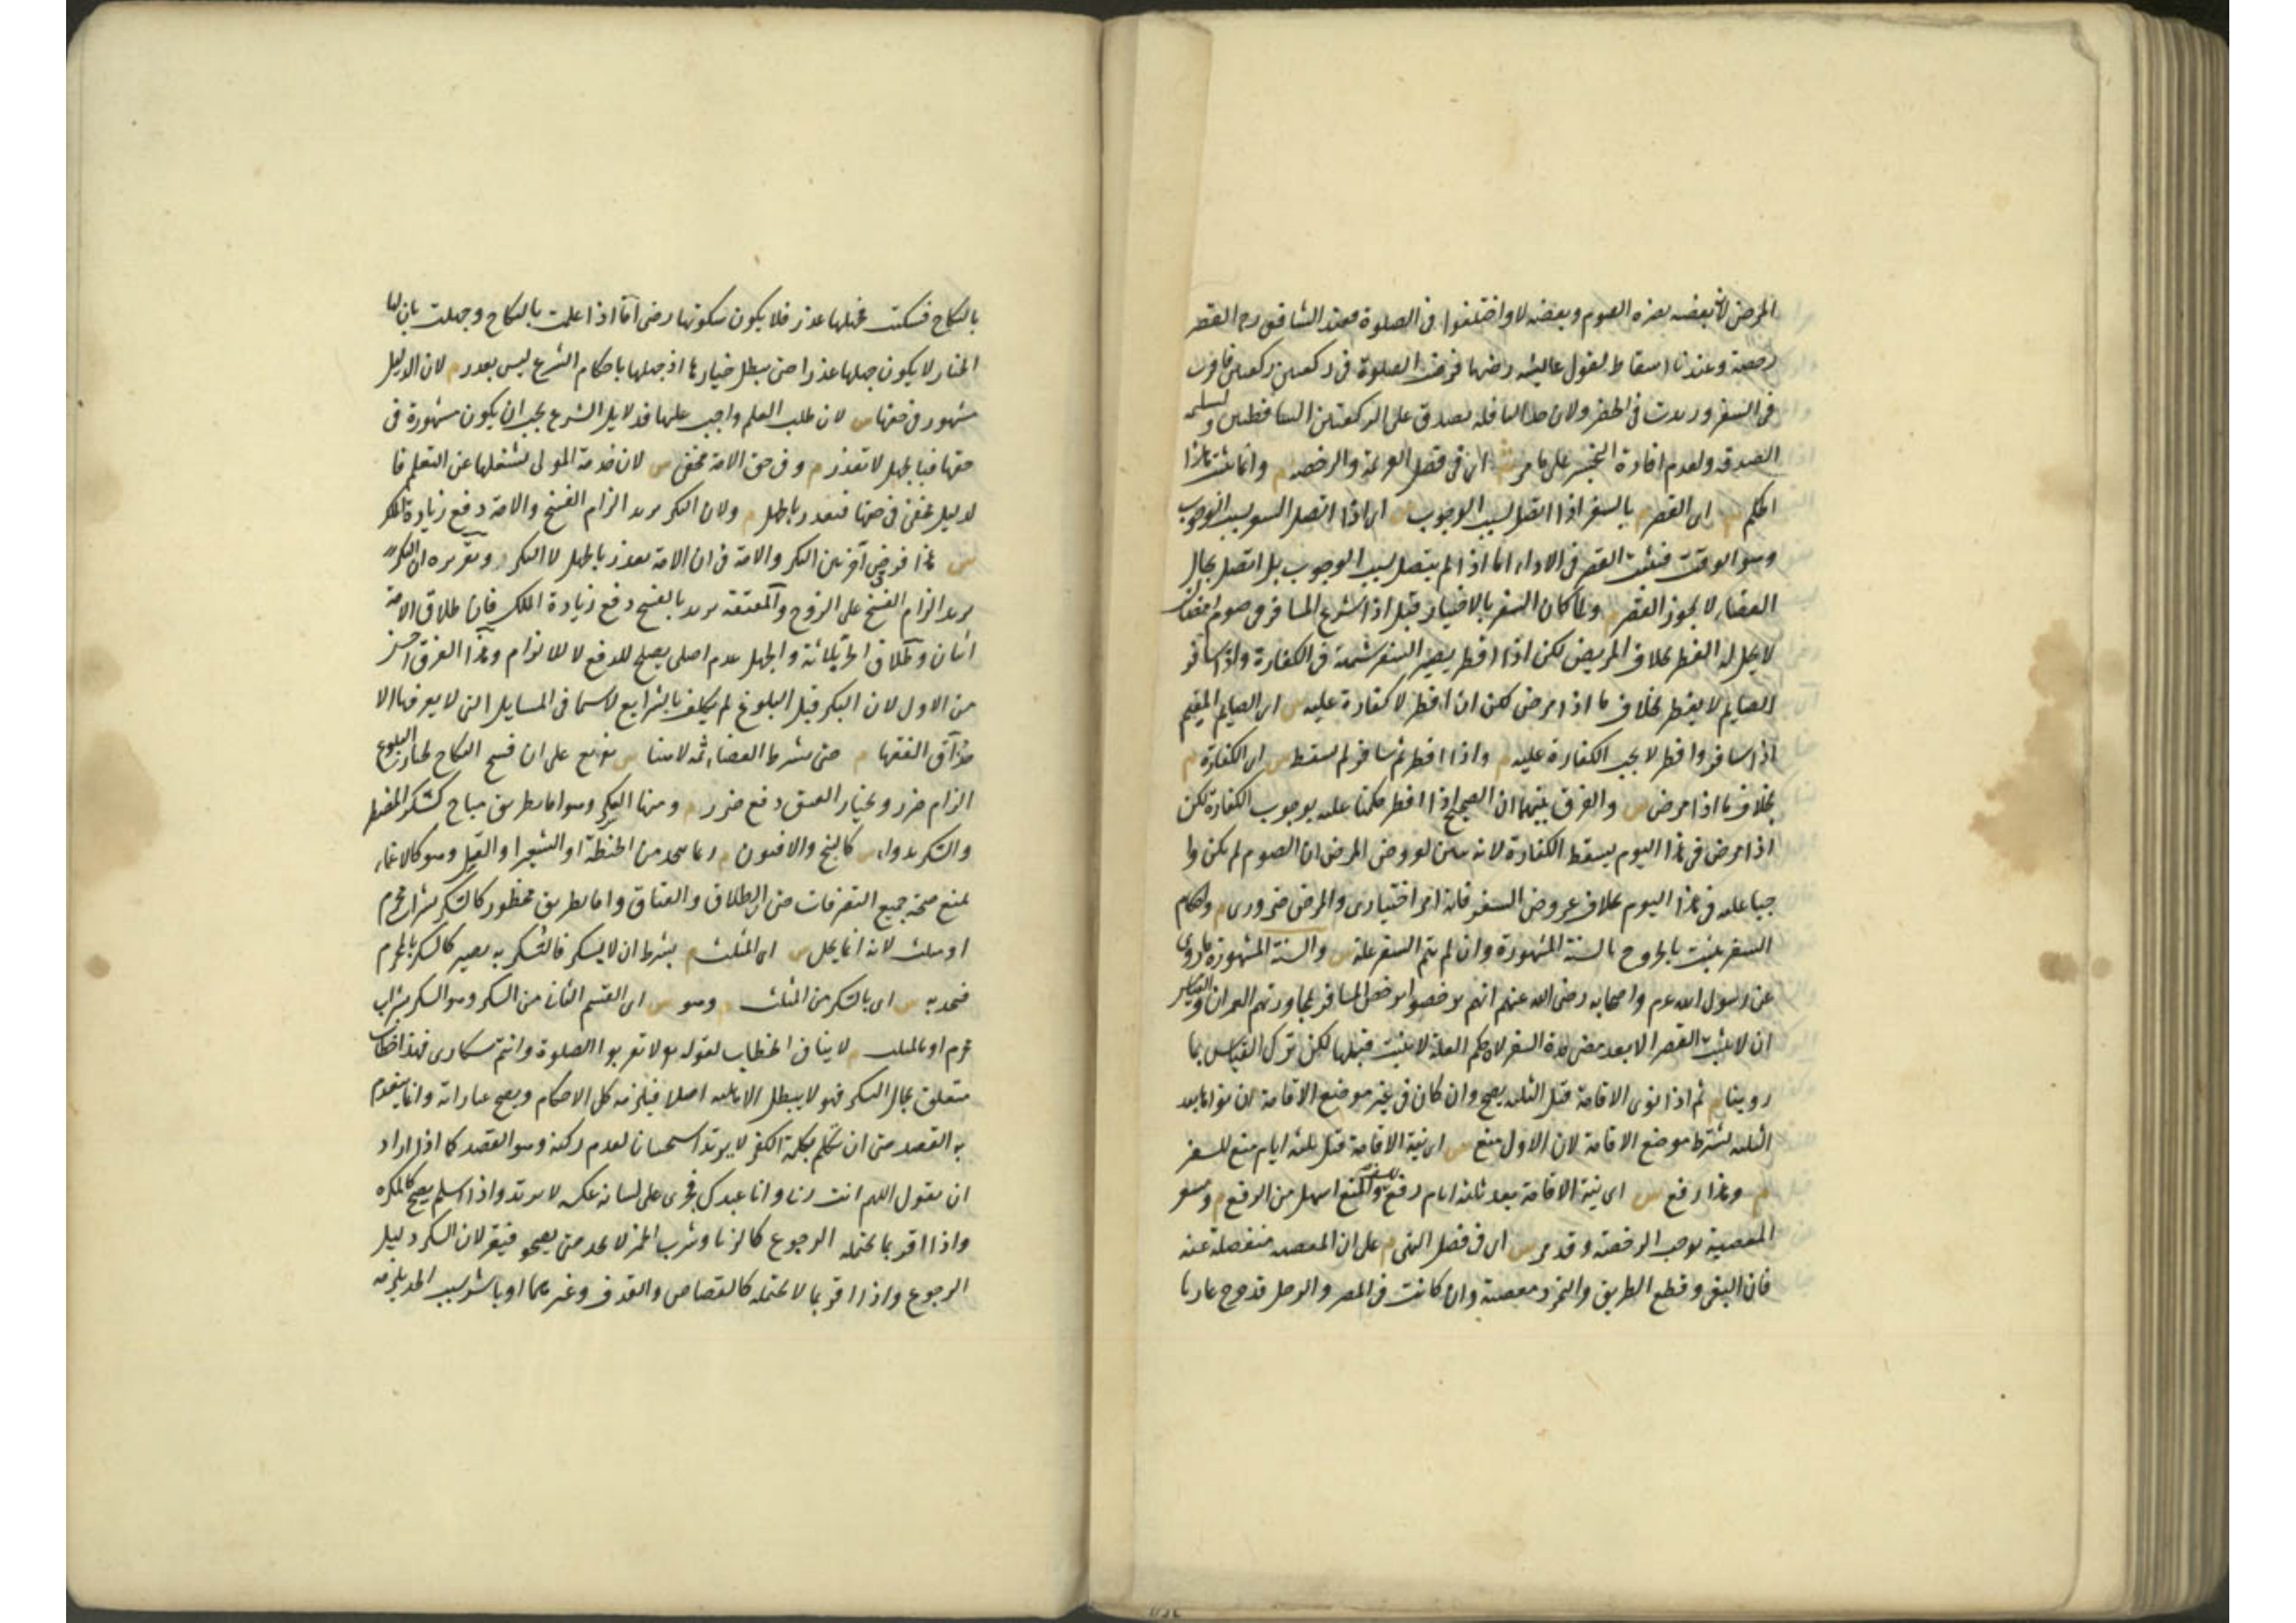 المرض لان بعضه يضره الصوم وبعضه لا واختلفوا فى الصلوة فعند الشافعى رح القصر
رخصة وعندنا اسقاط لقول عايشه رضها فرضت الصلوة فى ركعتين ركعتين فاقرت
فى السفر وزيدت فى الحضر ولان حد النافله يصدق على الركعتين الساقطتين ولتسلميه
الصدقه ولعدم افادة التخيير على ما مر ش اى فى فصل العزيمة والرخصة م وانما يثبت هذا
الحكم س اى القصر م بالسفر اذا اتصل بسبب الوجوب س اى اذا اتصل السفر بسبب الوجوب
وهو الوقت فيثبت القصر فى الاداء اما اذا لم يتصل بسبب الوجوب بل اتصل بحال
القضاء لا يجوز القصر م ولما كان السفر بالاختيار قيل اذا شرع المسافر فى صوم رمضان
لا يحل له الفطر بخلاف المريض لكن اذا افطر يصير السفر شبهة فى الكفارة واذا سافر
الصايم لا يفطر بخلاف ما اذا مرض لكن ان افطر لا كفارة عليه س اى الصايم المقيم
اذا سافر وافطر لا يجب الكفارة عليه م واذا افطر ثم سافر لم يسقط س اى الكفارة م
بخلاف ما اذا مرض س والفرق بينهما ان الصحيح اذا افطر حكمنا عليه بوجوب الكفارة لكن
اذا مرض فى هذا اليوم يسقط الكفارة لانه تبين لعروض المرض ان الصوم لم يكن وا
جبا عليه فى هذا اليوم بخلاف عروض السفر فانه امر اختيارى والمرض ضرورى م واحكام
السفر يثبت بالخروج بالسنة المشهورة وان لم يتم السفر علة س والسنة المشهورة ما روى
عن رسول الله عم واصحابه رضى الله عنهم انهم ترخصوا برخص المسافر بمجاوزتهم العمران والقياس
ان لا يثبت القصر الا بعد مضى مدة السفر لان حكم العلة لا يثبت قبلها لكن ترك القياس بما
روينا م ثم اذا نوى الاقامة قبل الثلثه يصح وان كان فى غير موضع الاقامة وان نواها بعد
الثلثه يشترط موضع الاقامة لان الاول منع س اى نية الاقامة قبل ثلثه ايام منع للسفر
م وهذا رفع س اى نية الاقامة بعد ثلثة ايام رفع للسفر والمنع اسهل من الرفع م وسفر
المعصية يوجب الرخصة وقد مر س اى فى فصل النهى م على ان المعصيه منفصلة عنه
فان البغى وقطع الطريق والتمرد معصية وان كانت فى المصر والرجل قد يخرج غازيا
بالنكاح فسكتت فجهلها عذر فلا يكون سكوتها رضى اما اذا علمت بالنكاح وجهلت بان لها
الخيار لا يكون جهلها عذرا حتى يبطل خيارها اذ جهلها باحكام الشرع ليس بعذر م لان الدليل
مشهور فى حقها س لان طلب العلم واجب عليها فدلايل الشرع يجب ان يكون مشهورة فى
حقها فبالجهل لا تعذر م وفى حق الامة مخفى س لان خدمة المولى يشغلها عن التعلم فا
لدليل مخفى فى حقها فتعذر بالجهل م ولان البكر تريد الزام الفسخ والامة دفع زيادة الملك
س هذا فرق آخر بين البكر والامة فى ان الامة تعذر بالجهل لا البكر وتقريره ان البكر
تريد الزام الفسخ على الزوج والمعتقة تريد بالفسخ دفع زيادة الملك فان طلاق الامة
اثنان وطلاق الحرة ثلاثة والجهل عدم اصلى يصلح للدفع لا للالزام وهذا الفرق احسن
من الاول لان البكر قبل البلوغ لم يكلف بالشرايع لا سيما فى المسايل التى لا يعرفها الا
حذاق الفقها م حتى يشترط القضاء ثمه لا هنا س تفريع على ان فسخ النكاح بخيار البلوغ
الزام ضرر وبخيار العتق دفع ضرر م ومنها السكر وهو اما بطريق مباح كسكر المضطر
والسكر بدواء س كالبنج والافيون م وما يتخذ من الحنطة او الشعير او العسل وهو كالاغماء
يمنع صحة جميع التصرفات حتى الطلاق والعتاق واما بطريق محظور كالسكر بشراب محرم
او مثلث لانه انما يحل س اى المثلث م بشرط ان لا يسكر فالسكر به يصير كالسكر بالمحرم
فيحد به س اى بالسكر من المثلث م وهو س اى القسم الثانى من السكر وهو السكر بشراب
محرم او بالمثلث م لا ينافى الخطاب لقوله تع لا تقربوا الصلوة وانتم سكارى فهذا خطاب
متعلق بحال السكر فهو لا يبطل الاهليه اصلا فيلزمه كل الاحكام ويصح عباراته وانما ينعدم
به القصد حتى ان تكلم بكلمة الكفر لا يرتد استحسانا لعدم ركنه وهو القصد كما اذا اراد
ان يقول اللهم انت ربى وانا عبدك فجرى على لسانه عكسه لا يرتد واذا اسلم يصح كالمكره
واذا اقر بما يحتمل الرجوع كالزنا وشرب الخمر لا يحد حتى يصحو فيقر لان السكر دليل
الرجوع واذا اقر بما لا يحتمله كالقصاص والقذف وغيرهما او باشر سبب الحد يلزمه